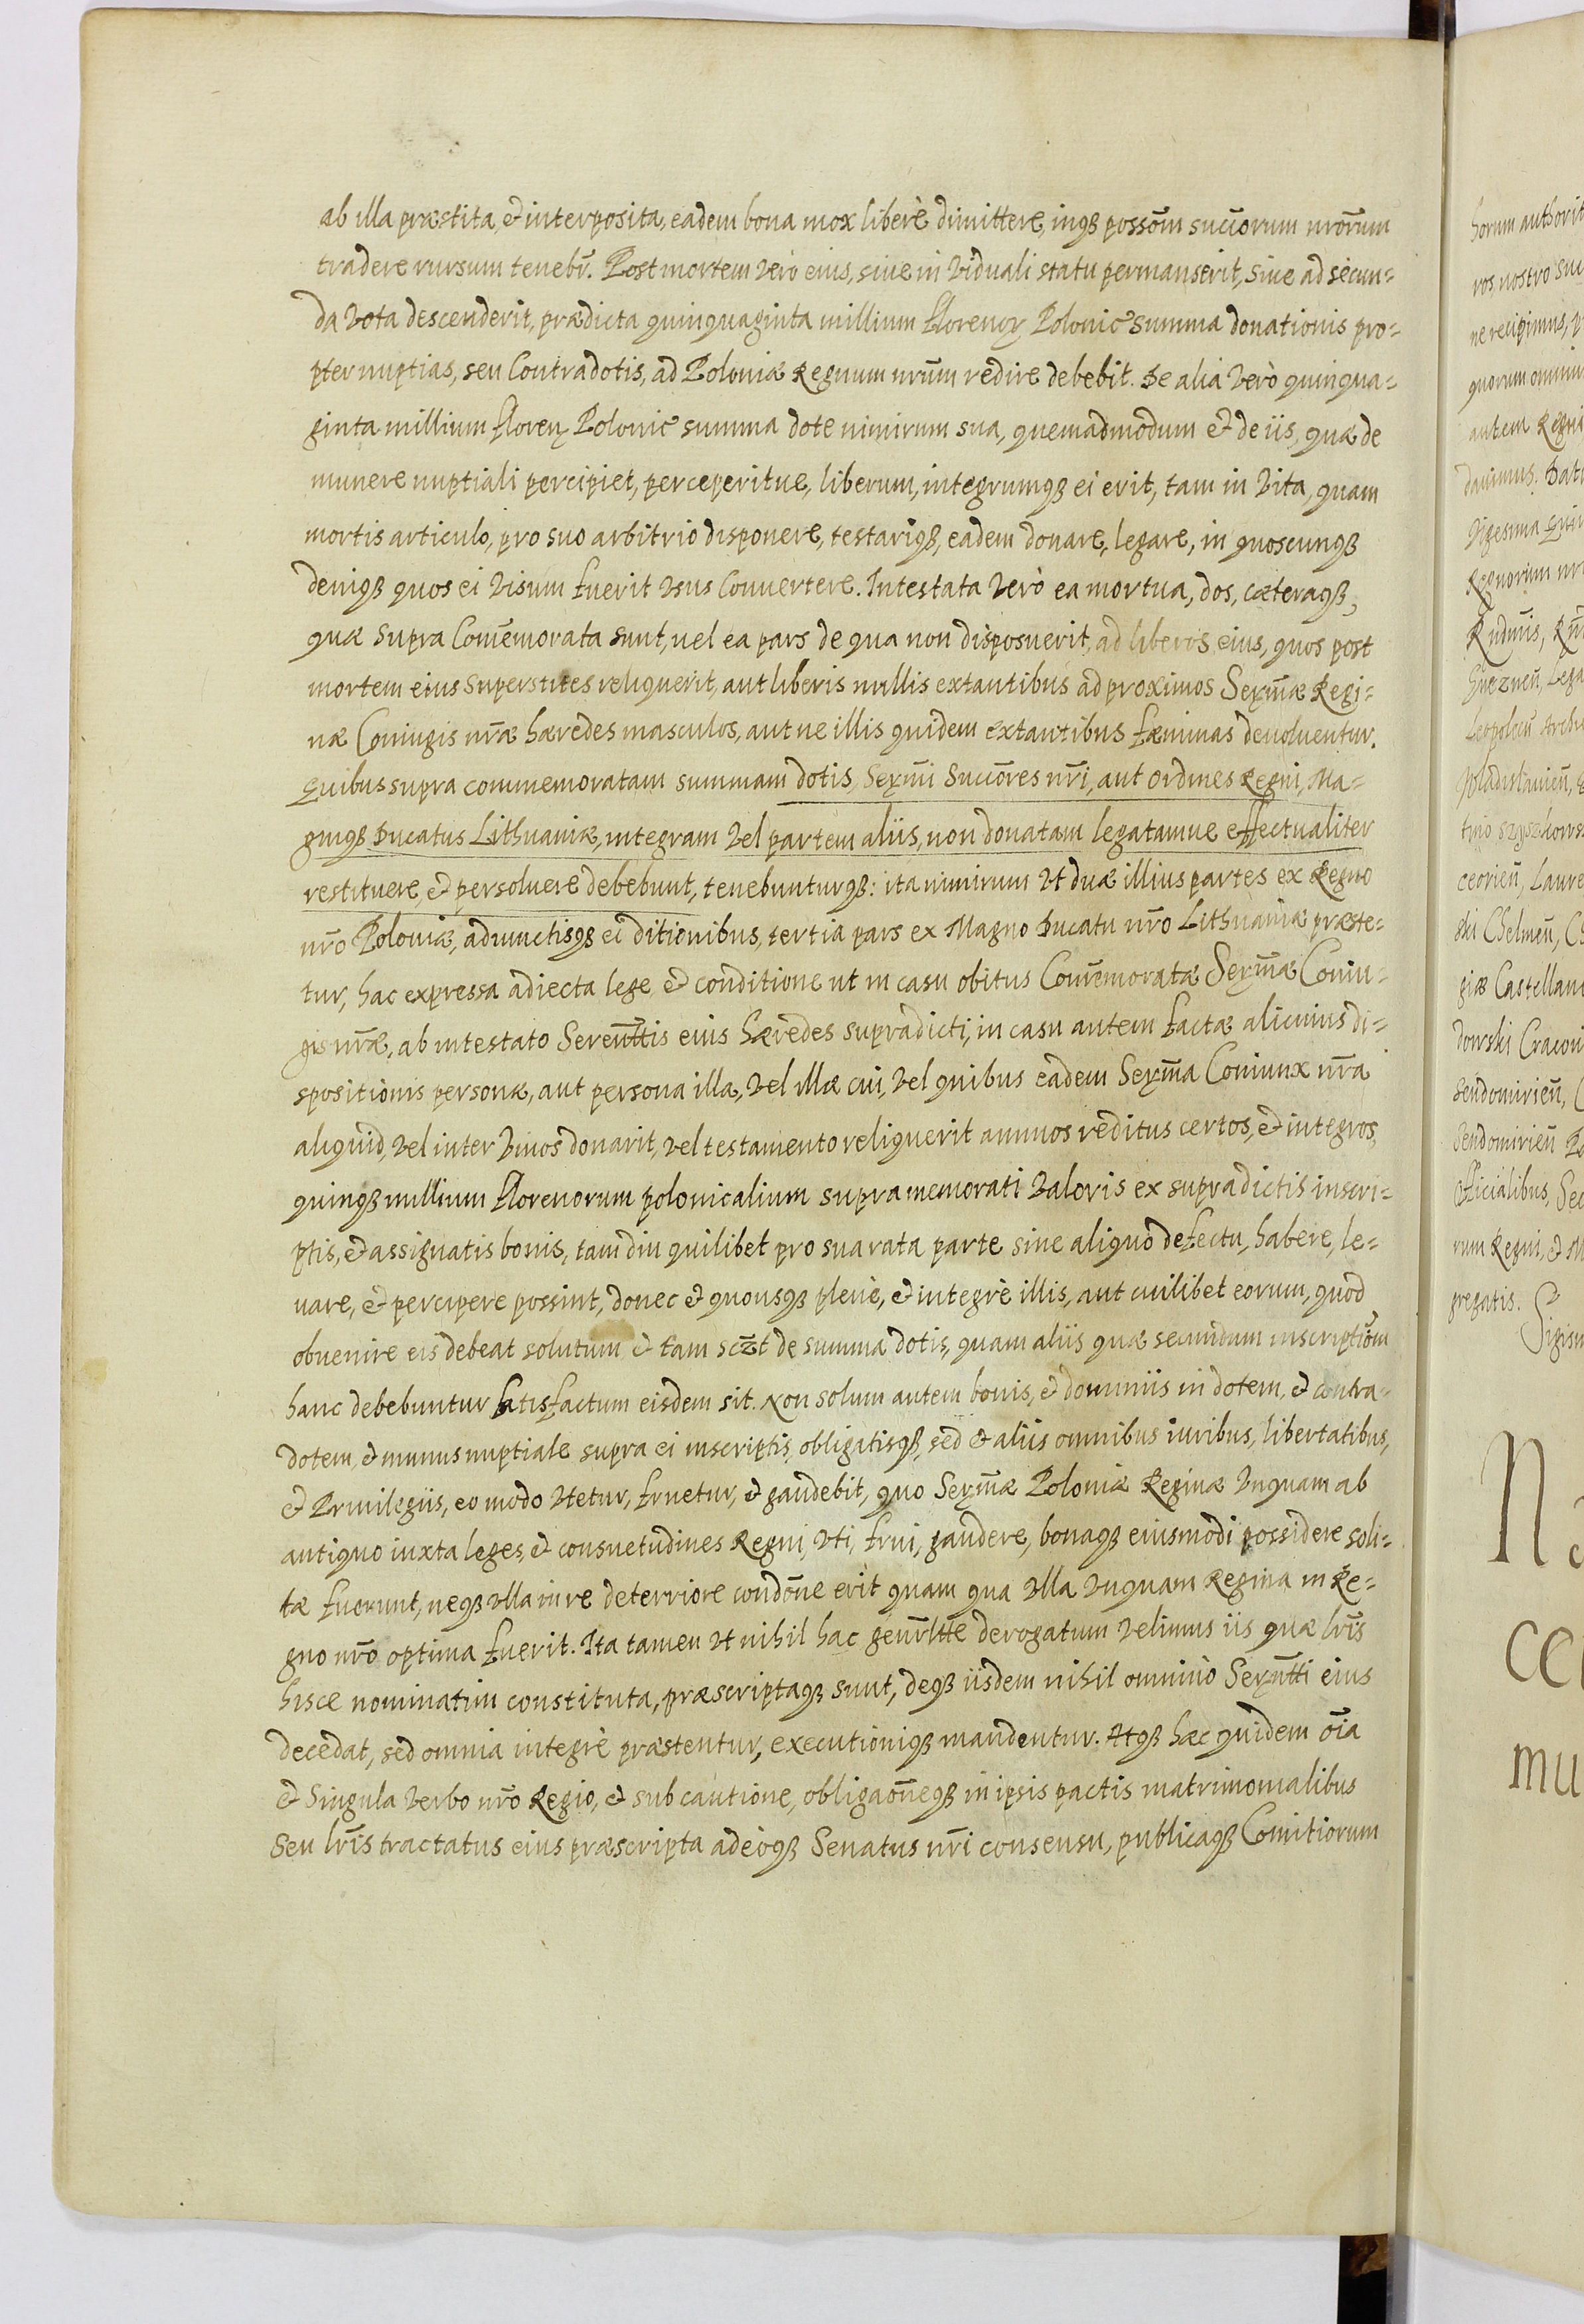 ab illa præstita, et interposita, eadem bona mox liberè dimittere, inqȝ possōm succorum nrōrum
tradere rursum tenebr̄. Post mortem verò eius, siue in viduali statu permanserit, siue ad secun=
da vota descenderit, prædicta quinquaginta millium florenoꝝ Polonic summa donationis pro=
pter nuptias, seu Contradotis, ad Poloniæ Regnum nrūm redire debebit. De alia verò quinqua=
ginta millium florenꝝ Polonic summa dote nimirum sua, quemadmodum et de iis, quæ de
munere nuptiali percipiet, perceperitue, liberum, integrumqȝ ei erit, tam in vita, quam
mortis articulo, pro suo arbitrio disponere, testariqȝ, eadem donare, legare, in quoscunqȝ
deniqȝ quos ei visum fuerit vsus Conuertere. Intestata verò ea mortua, dos, cæteraqȝ,
quæ supra Com̄emorata sunt, uel ea pars de qua non disposuerit, ad liberos eius, quos post
mortem eius superstites reliquerit, aut liberis nullis extantibus ad proximos Serm̄æ Regi=
næ Coniugis nrǣ hæredes masculos, aut ne illis quidem extantibus fæminas deuoluentur.
Quibus supra commemoratam summam dotis, Serm̄i Succōres nrī, aut Ordines Regni, Ma=
gniqȝ Ducatus Lithuaniæ, integram vel partem aliis, non donatam legatamue effectualiter
restituere, et persoluere debebunt, tenebunturqȝ: ita nimirum vt duæ illius partes ex Regno
nrō Poloniæ, adiunctisqȝ ei ditionibus, tertia pars ex Magno Ducatu nrō Lithuaniæ præste=
tur, hac expressa adiecta lege et conditione ut in casu obitus Com̄emoratæ Serm̄æ Coniu=
gis nrǣ, ab intestato Serenttis eius hæredes supradicti, in casu autem factæ alicuius di=
spositionis personæ, aut persona illa, vel illæ cui, vel quibus eadem Serm̄a Coniunx nrā
aliquid, vel inter viuos donarit, vel testamento reliquerit annuos reditus certos, et integros,
quinqȝ millium florenorum polonicalium supra memorati valoris ex supradictis inscri=
ptis, et assignatis bonis, tam diu quilibet pro sua rata parte sine aliquo defectu, habere, le=
uare, et percipere possint, donec et quousqȝ plenè, et integrè illis, aut cuilibet eorum, quod
obuenire eis debeat solutum et tam sczt de summa dotis, quam aliis quæ secundum inscriptiōm
hanc debebuntur satisfactum eisdem sit. Non solum autem bonis, et dominiis in dotem, et contra=
dotem, et munus nuptiale supra ei inscriptis, obligatisqȝ, sed et aliis omnibus iuribus, libertatibus,
et Priuilegiis, eo modo vtetur, fruetur, et gaudebit, quo Serm̄æ Poloniæ Reginæ vnquam ab
antiquo iuxta leges, et consuetudines Regni, vti, frui, gaudere, bonaqȝ eiusmodi possidere soli=
tæ fuerunt, neqȝ vlla in re deterriore condōne erit quam qua vlla vnquam Regina in Re=
gno nrō optima fuerit. Ita tamen vt nihil hac genrltte derogatum velimus iis quæ lrīs
hisce nominatim constituta, præscriptaqȝ sunt, deqȝ iisdem nihil omninò Serntti eius
decedat, sed omnia integrè præstentur, executioniqȝ mandentur. Atqȝ hæc quidem oīa
et singula verbo nrō Regio, et sub cautione, obligaōneqȝ in ipsis pactis matrimonialibus
seu lrīs tractatus eius præscripta adeòqȝ Senatus nrī consensu, publicaqȝ Comitiorum
horum authorit
ros nostro suc
ne recipimus, p
quorum omniu
autem Regni
dauimus. Dat
Vigesima Quin
Regnorum nr
Rudnis,
Leg
Leopolien Archi
Wladislauien, 
ceorien, Laure
ski Chelmen, Ch
giæ Castellan
dowski Cracoui
Sendomirien, C
Sendomirien Pa
Officialibus, Sec
rum Regni, et M
gregatis.
Sigism
N
ce
mu